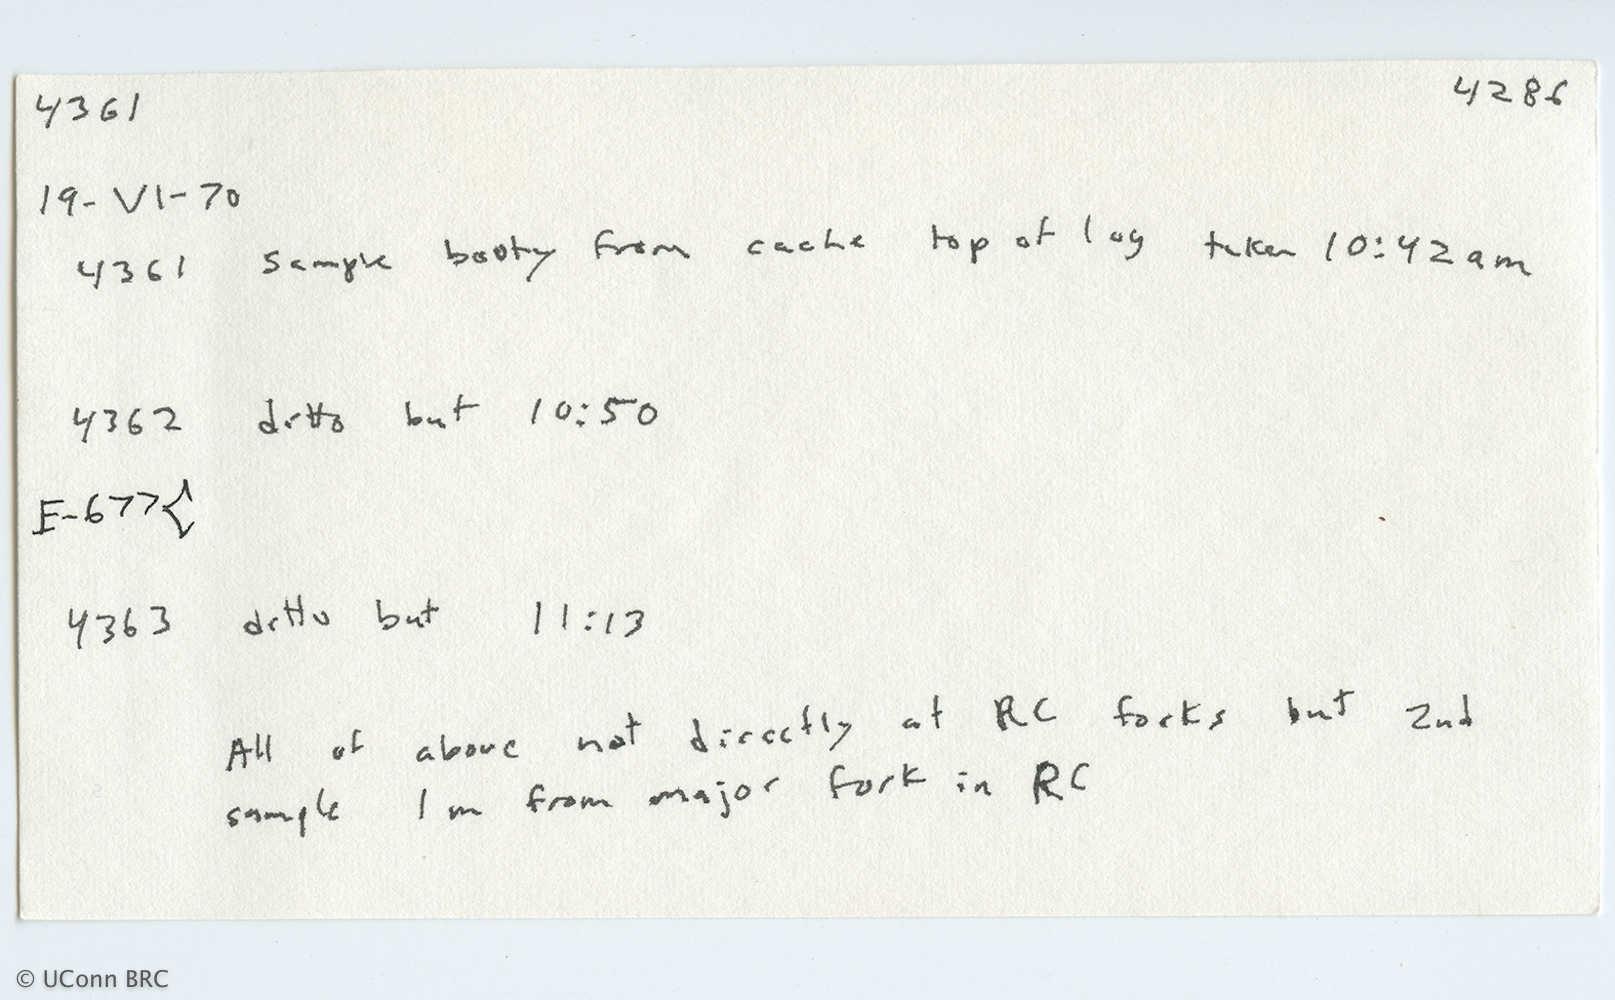 4361 4286
19-VI-70
4361 sample booty from cache top of log taken 10:42am
4362 ditto but 10:50
E-677{
4363 ditto but 11:13
All of above not directly at RC forks but 2nd
sample 1m from major fork in RC
© UConn BRC